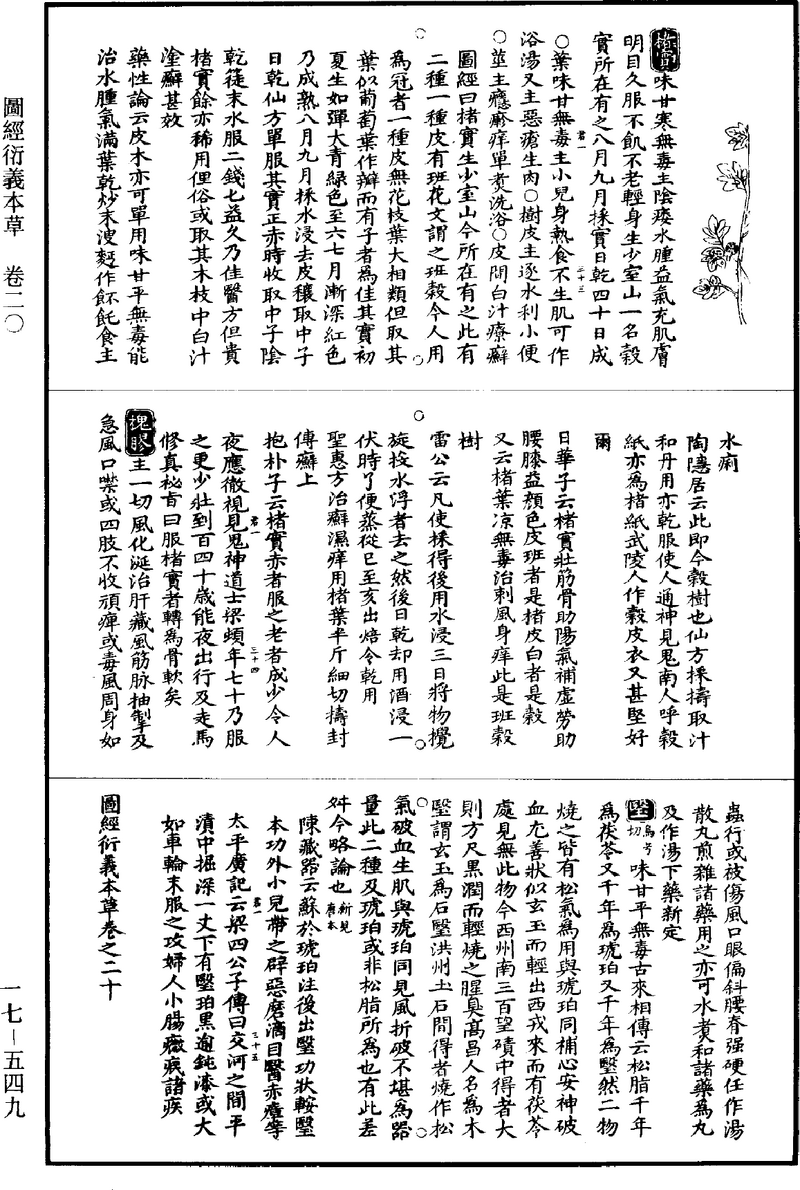 楮實味甘寒無毒主陰痿水腫益氣充肌膚
明目久服不飢不老輕身生少室山一名榖
實所在有之八月九月採實日乾四十日成
君一
○葉味甘無毒主小兒身熱食不生肌可作
三十三
浴湯又主惡瘡生肉○樹皮主逐水利小便
○莖主癮𤺋痒單煑洗浴○皮間白汁療癬
圖經曰楮實生少室山今所在有之此有
二種一種皮有班花文謂之班榖今人用
為冠者一種皮無花枝葉大相類但取其
葉似葡萄葉作瓣而有子者為佳其實初
夏生如彈大青綠色至六七月漸深紅色
乃成熟八月九月採水浸去皮穰取中子
日乾仙方單服其實正赤時收取中子陰
乾篵末水服二錢七益久乃佳醫方但貴
楮實餘亦稀用俚俗或取其木枝中白汁
塗癬甚效
藥性論云皮木亦可單用味甘平無毒能
治水腫氣滿葉乾炒末溲麪作飥飥食主
水痢
陶隱居云此即今榖樹也仙方採擣取汁
和丹用亦乾服使人通神見鬼南人呼榖
紙亦為楮紙武陵人作榖皮衣又甚堅好
爾
日華子云楮實壯筋骨助陽氣補虛勞助
腰膝益顏色皮班者是楮皮白者是榖
又云楮葉凉無毒治刺風身痒此是班榖
樹
雷公云凡使採得後用水浸三日將物攪
旋投水浮者去之然後日乾却用酒浸一
伏時了便蒸從巳至亥出焙令乾用
聖惠方治癬濕痒用楮葉半斤細切擣封
傅癬上
抱朴子云楮實亦者服之老者成少令人
君一
夜應徹視見鬼神道士梁頍年七十乃服
三十四
之更少壯到百四十歲能夜出行及走馬
修真祕旨曰服楮實者轉為骨軟矣
槐膠主一切風化涎治肝藏風筋脉抽掣及
急風口噤或四肢不收頑痺或毒風周身如
蟲行或被傷風口眼偏斜腰脊強硬任作湯
散丸煎雜諸藥用之亦可水煑和諸藥為丸
及作湯下藥新定
瑿烏兮切味甘平無毒古來相傳云松脂千年
為茯苓又千年為琥珀又千年為瑿然二物
燒之皆有松氣為用與琥珀同補心安神破
血尤善狀似玄玉而輕出西戎來而有茯苓
處見無此物今西州南三百望磧中得者大
則方尺黑潤而輕燒之腥臭高昌人名為木
瑿謂玄玉為石瑿洪州土石間得者燒作松
氣破血生肌與琥珀同見風折破不堪為器
量此二種及琥珀或非松脂所為也有此差
舛今略論也新見唐本
陳藏器云蘇於琥珀注後出瑿功狀按瑿
本功外小兒帶之辟惡磨滴目翳赤瘴等
君一
三十五
太平廣記云梁四公子傳曰交河之間平
磧中掘深一丈下有瑿珀黑逾純漆或大
如車輪末服之攻婦人小腸癥瘕諸疾
圖經衍義本草卷之二十
圖經衍義本草　卷二〇
一七－五四九